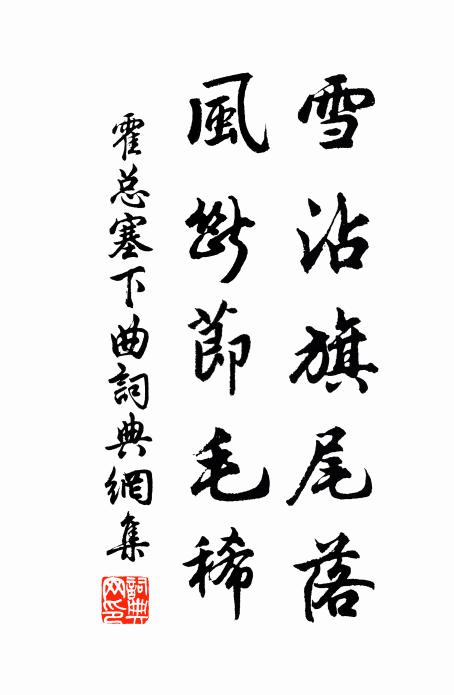 雪沾旗尾落
風斷節毛稀
霍总塞下曲詞典網集
詞典网印